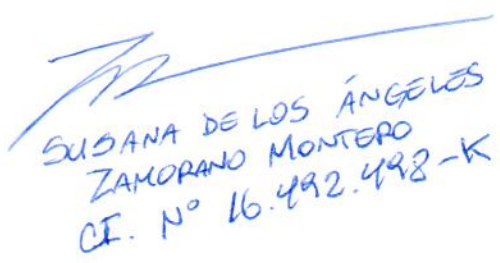 SUSANA DE LOS ÁNGELES
ZAMORANO MONTERO
CI. N° 16.492.498-K